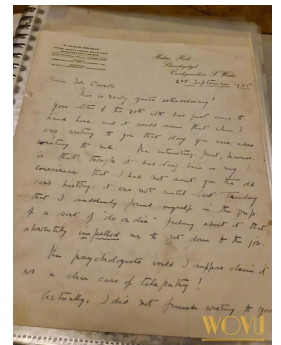 Hall
Llandyssul
Cardiganshire S. Wales
2nd September 19
Dear
This is really quite extraordinary!
Your letter of the 20th has just come to
hand here, and it would seem that when I
was writing to you that day you were also
writing to me. The interesting part, however,
is that though it has long been on my
conscience that I had not sent you the old
history, it was not until last Tuesday
that I suddenly found myself in the grip
of a sort of "do or die" feeling about it that
absolutely impelled me to get down to the job.
The psychologists would I suppose claim it
as a clear case of telepathy!
Actually, I did not finish writing to you
WOVU